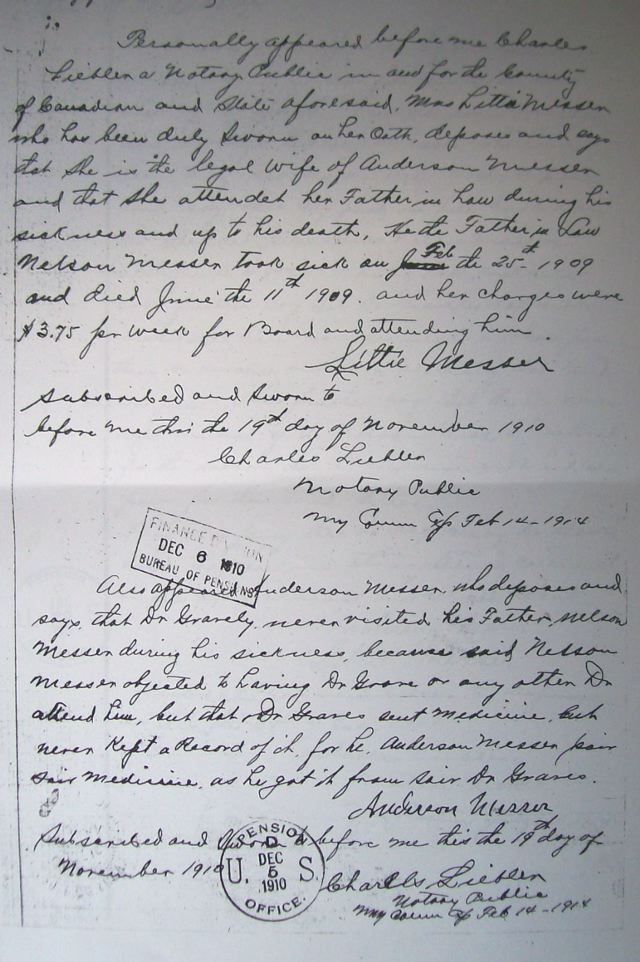 Personally appeared before me Charles
Lieblen a Notary Public in and for the County
of Canadian and State aforesaid, Mrs Litta Messer
who has been duly Sworn on her Oath, deposes and says
that She is the legal wife of Anderson Messer
and that She attendet her Father in Law during his
sickness and up to his death, He the Father in Law
Nelson Messer took sick on Feb the 25th 1909
and died June the 11th 1909. and her charges were
$3.75 per week for Board and attending him.
Littie Messer
Subscribed and Sworn to
before me this the 19th day of November 1910
Charles Lieblen
Notary Public
My Comm Exp Feb 14-1914
FINANCE DIVISION
DEC 6 1910
BUREAU OF PENSIONS
Also appeared Anderson Messer, who deposes and
says, that Dr Gravely, never visited his Father, Nelson
Messer during his sickness, because said Nelson
Messer objected to having Dr Grave or any other Dr
attend him, but that Dr Graves sent Medicine, but
never Kept a Record of it, for he, Anderson Messer pair
sair Medicine, as he got it from sair Dr Graves.
Anderson Messer
Subscribed and Sworn to before me this the 19th day of
November 1910
PENSION
D
DEC
5
1910
U. S.
OFFICE.
Charles Lieblen
Notary Public
My Comm Exp Feb 14-1914